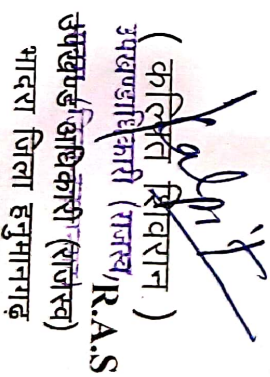 ( कल्पित शिवरान )
उपखण्डाधिकारी (राजस्व) R.A.S
उपखण्ड अधिकारी (राजस्व)
भादरा जिला हनुमानगढ़